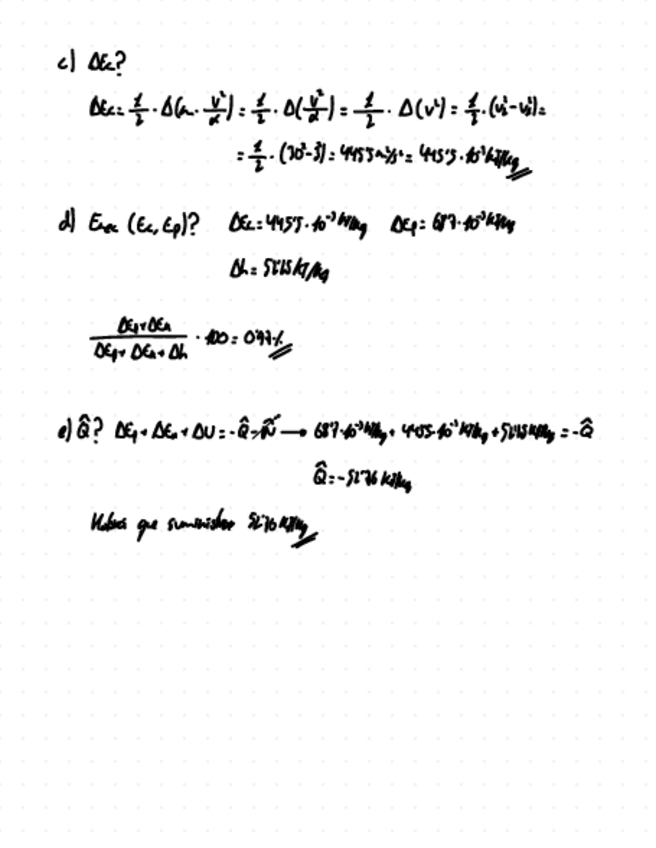 c) ΔEc?
ΔEc = 1/2 · Δ(m · v²/α) = 1/2 · Δ(v²/α) = 1/2 · Δ(v²) = 1/2 · (v₂² - v₁²) =
= 1/2 · (30² - 3²) = 445'5 m²/s² = 445'5 · 10⁻³ kJ/kg
d) Emec (Ec, Ep)? ΔEc = 445'5 · 10⁻³ kJ/kg ΔEp = 68'7 · 10⁻³ kJ/kg
Δh = kJ/kg
ΔEp + ΔEc / ΔEp + ΔEc + Δh · 100 = 0'97%
e) Q̂? ΔEp + ΔEc + ΔU = -Q̂ - Ŵ → 68'7 · 10⁻³ kJ/kg + · 10⁻³ kJ/kg + kJ/kg = -Q̂
Q̂ = -52'76 kJ/kg
Habrá que suministrar 52'76 kJ/kg